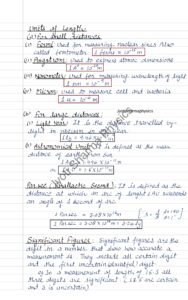 Units of Length:
(a) For Small distances:
(i) Fermi Used for measuring Nuclear sizes. Also
called femtometre. 1 fermi = 10⁻¹⁵ m
(ii) Angstrom: Used to express atomic dimensions
1 A° = 10⁻¹⁰ m
(iii) Nanometer: Used for measuring wavelength of light
1 nm = 10⁻⁹ m
(iv) Micron: Used to measure cell and bacteria
1 μ = 10⁻⁶ m
(b) For large distances:
(i) Light Year: It is the distance travelled by
light in vacuum in one year.
(ii) Astronomical Unit: It is defined as the mean
distance of earth from sun
Parsec (Parallactic Second): It is defined as the
distance at which an arc of length 1 AU subtends
an angle of 1 second of arc.
Significant Figures: Significant figures are the
digit in a number that show how accurate a
measurement is. They include all certain digit
and the first uncertain/doubtful digit.
eg In a measurement of length of 15.3 all
three digits are significant (1 & 5 are certain
and 3 is uncertain)